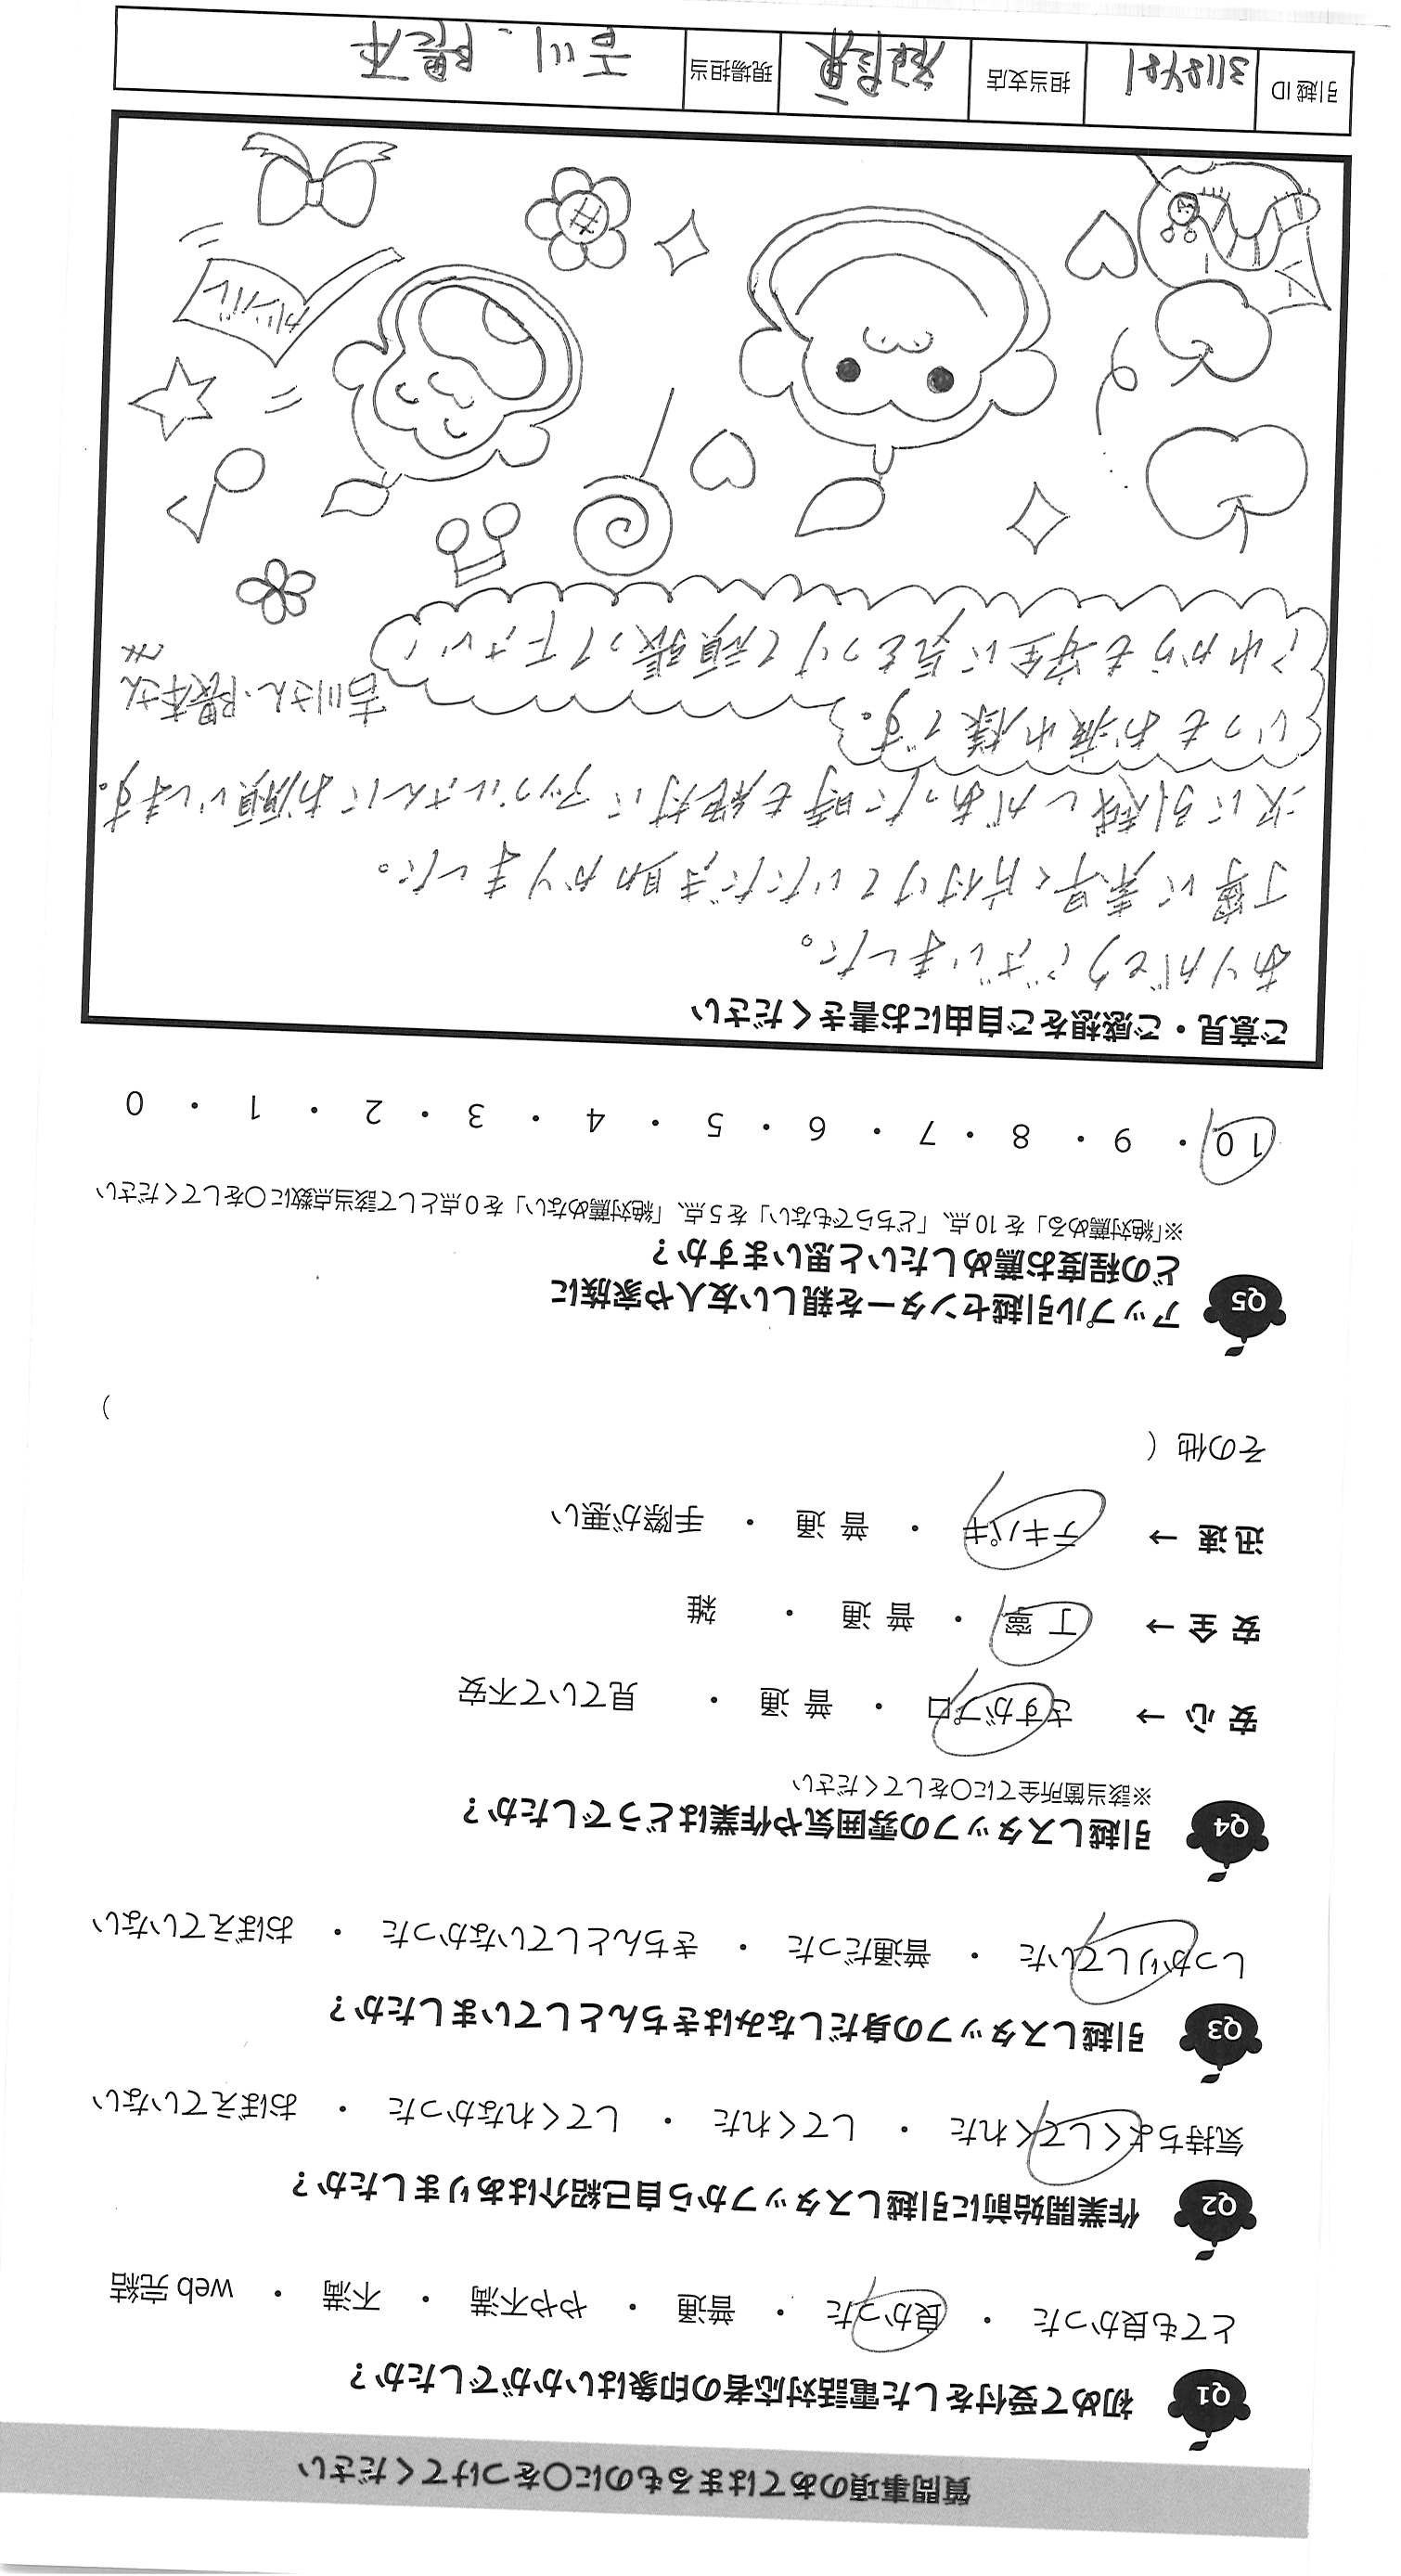 質問事項のあてはまるものに〇をつけてください
Q1 初めて受付をした電話対応者の印象はいかがでしたか？
とても良かった ・ 良かった ・ 普通 ・ やや不満 ・ 不満 ・ web 完結
Q2 作業開始前に引越しスタッフから自己紹介はありましたか？
気持ちよくしてくれた ・ してくれた ・ してくれなかった ・ おぼえていない
Q3 引越しスタッフの身だしなみはきちんとしていましたか？
しっかりしていた ・ 普通だった ・ きちんとしていなかった ・ おぼえていない
Q4 引越しスタッフの雰囲気や作業はどうでしたか？
※該当箇所全てに〇をしてください
安心 → さすがプロ ・ 普通 ・ 見ていて不安
安全 → 丁寧 ・ 普通 ・ 雑
迅速 → テキパキ ・ 普通 ・ 手際が悪い
その他（ ）
Q5 アップル引越センターを親しい友人や家族に
どの程度お薦めしたいと思いますか？
※「絶対薦める」を10点、「どちらでもない」を5点、「絶対薦めない」を0点として該当点数に〇をしてください
10 ・ 9 ・ 8 ・ 7 ・ 6 ・ 5 ・ 4 ・ 3 ・ 2 ・ 1 ・ 0
ご意見・ご感想をご自由にお書きください
ありがとうございました。
丁寧に素早く片付けていただき助かりました。
次に引越しがあった時も絶対にアップルさんにお願いします。
いつもお疲れ様です。
吉川さん・隈本さん
これからも安全に気をつけて頑張って下さい！
ガンバレ
引越ID
担当支店
現場担当 吉川・隈本